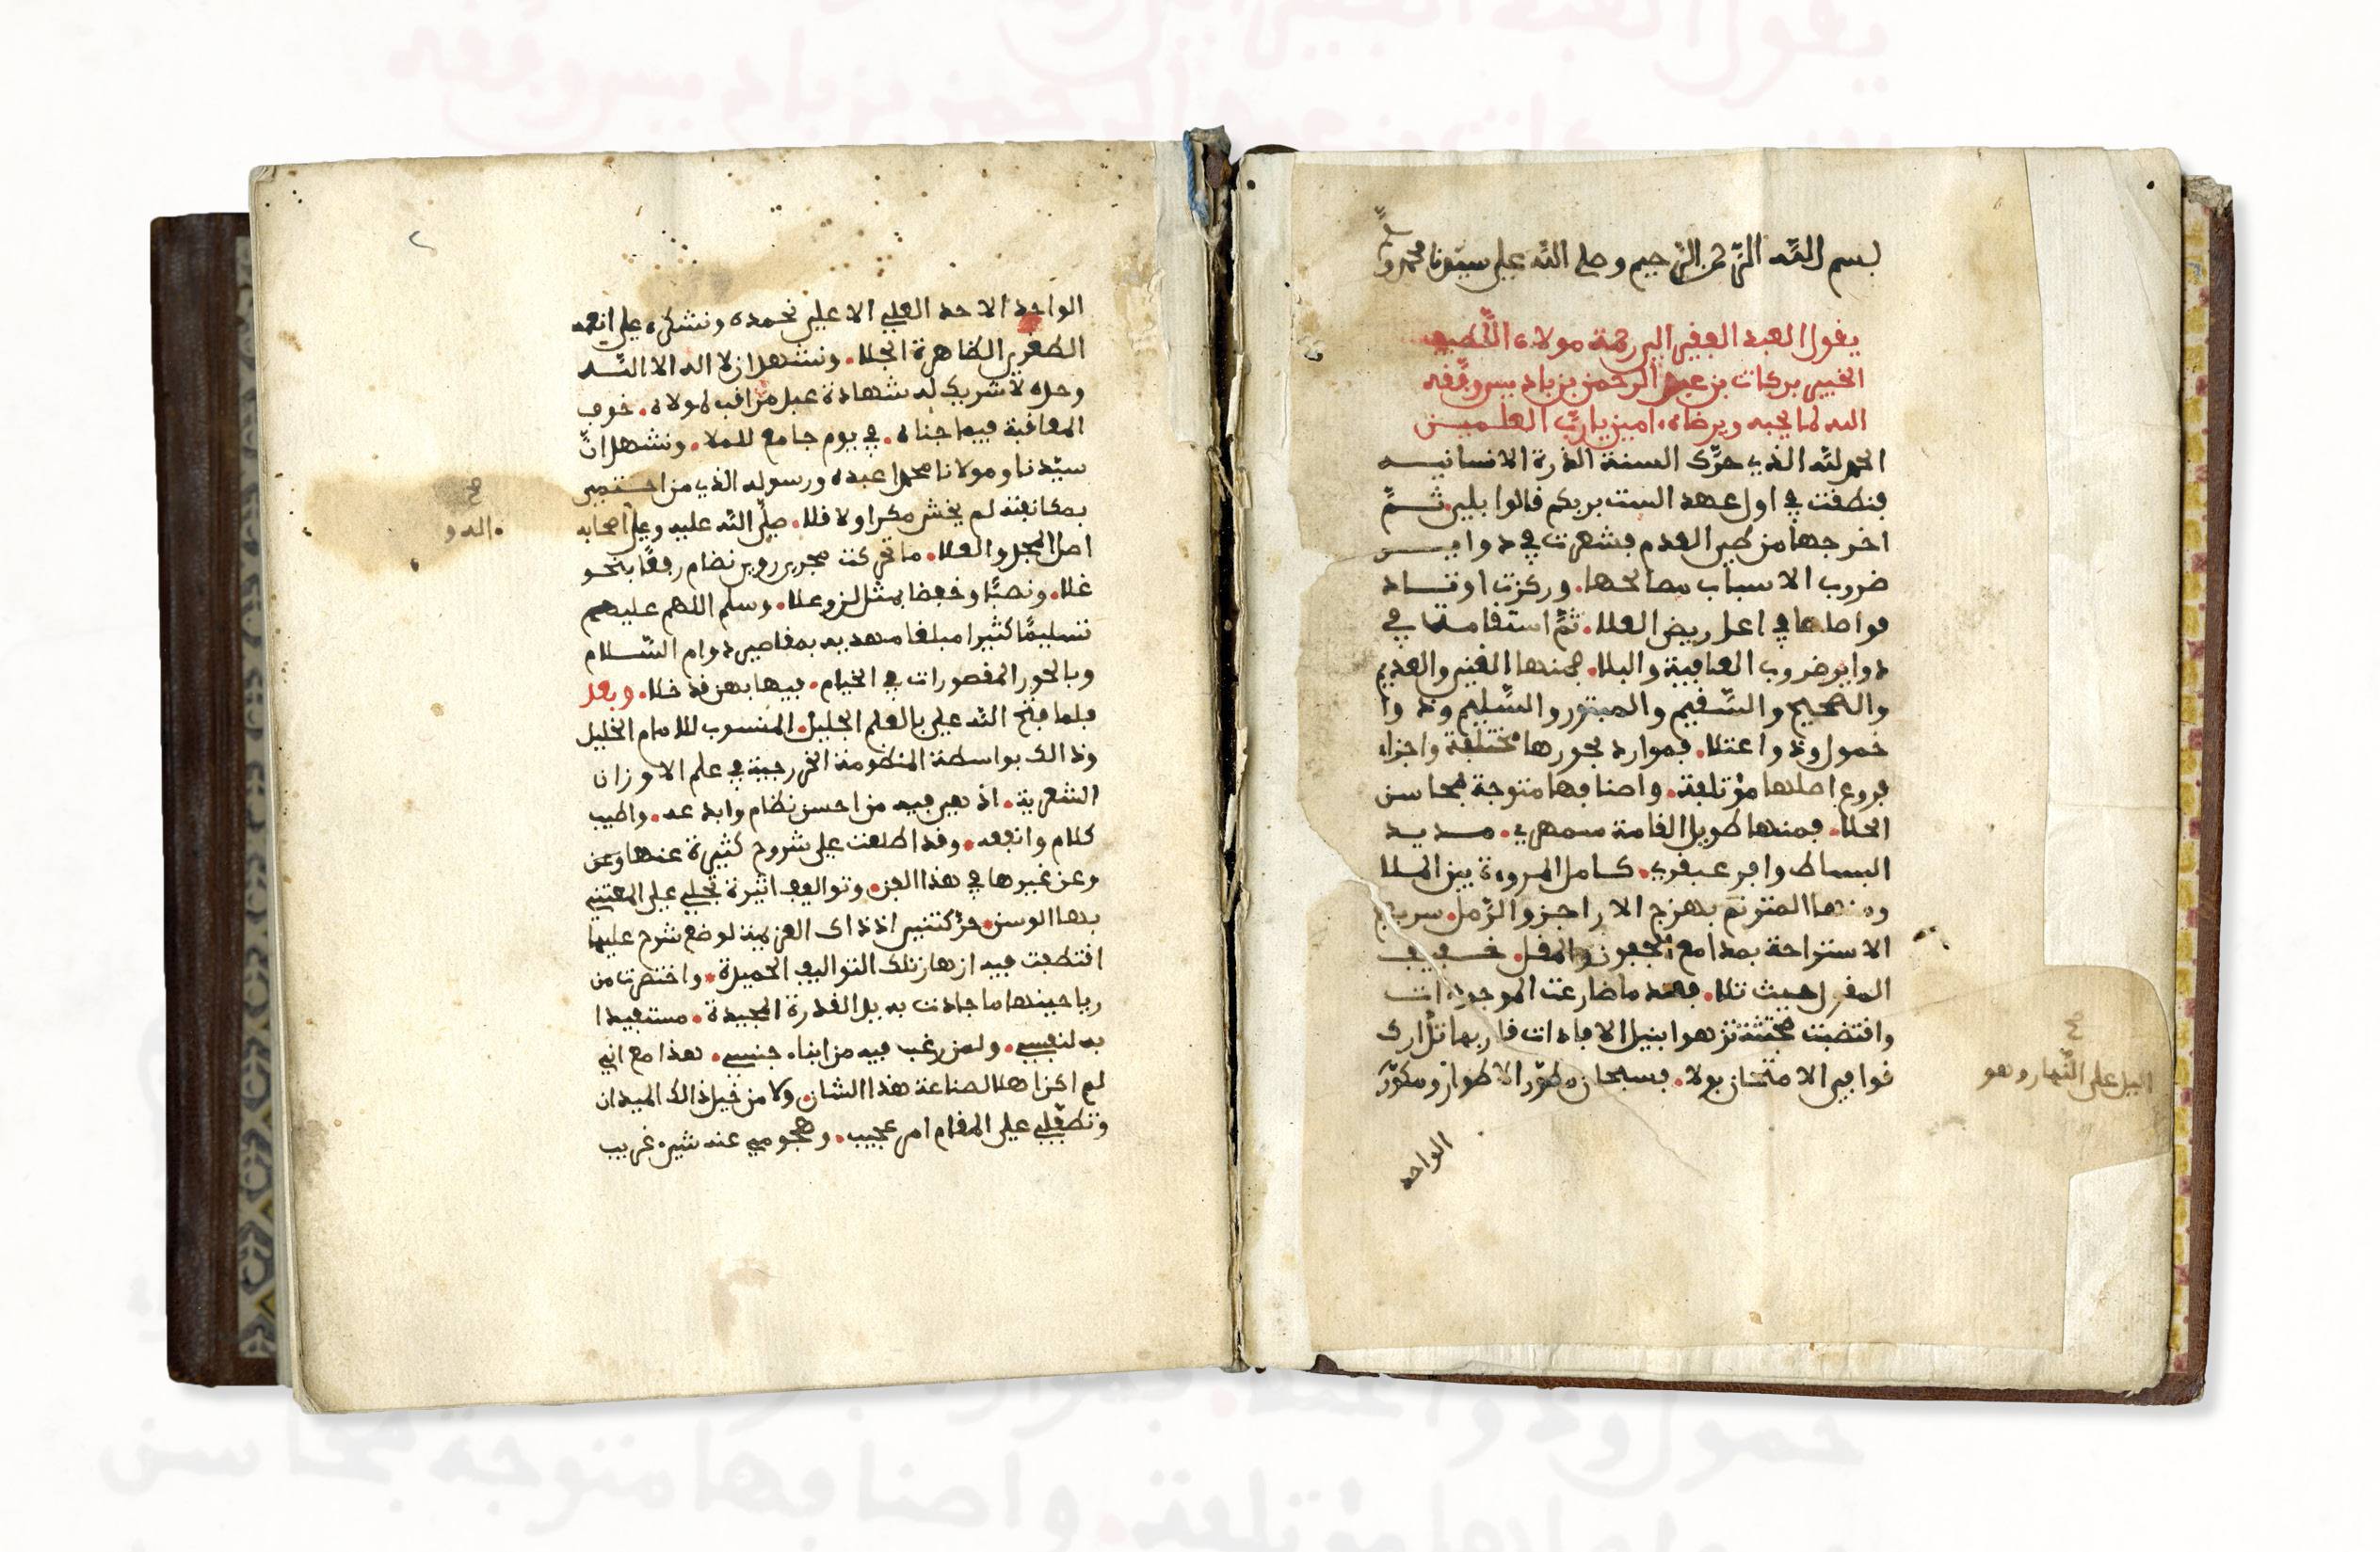 بسم الله الرحمن الرحيم وصلى الله على سيدنا محمد وسلم
يقول العبد الفقير الى رحمة مولاه اللطيف
الخبير بركات بن عبد الرحمن بن باديس وفقه
الله لما يحبه ويرضاه امين يارب العلميـن
الحمد لله الذي حرّك السنة الذرة الانسانيـه
فنطقت في اول عهد الست بربكم قالوا بلى ثـمّ
اخرجها من طي العدم فشعرت في دوايـر
ضروب الاسباب مصالحها. وركزت اوتـاد
فواصلها في اعاريض العلا. ثمّ استقامت في
دواير ضروب العافية والبلا. فمنها الغني والعديم
والصحيح والسّقيم والمبتور والسّليم وذ وا
خمول وذ وا اعتلا. فموارد بحورها مختلفة واجزاء
فروع اصلها مؤتلفة. واصنافها متوجة بمحاسن
الحلا. فمنها طويل القامة سمهري. مـديـد
البساط وافر عبقري. كامل المروءة بين الملا
ومنها المترنم بهزج الاراجز والرّمل. سريع
الاستراحة بمدامع الجفون والمقل. خـفيـف
المقر احيث تلا. فعند ماضارعت الموجودات
واقتضبت مجتثة نزهوا بنيل الافادات قاربها تدارك
قوافي الامتحان بولا. فسبحان مطوّر الاطوار ومكوّر
صح
اليل على النّهار وهو
الواحد
الواحد الاحد العلي الاعلى نحمده ونشكره على انعمه
الظفرى الظاهرة الجلا. ونشهد ان لا اله الا اللـه
وحده لا شريك له شهادة عبد مراقب لمولاه. خوف
المعاقبة فيما جناه. في يوم جامع للملا. ونشهد انّ
سيّدنا ومولانا محمدا عبده ورسوله الذي من احـتمى
بمكانفته لم يخش مكرا ولا قلا. صلّى الله عليه وعلى اصحابه
صح
.اله و
اهل المجد والعلا. ما تحركت مجرى روي نظام رفعًا بنحو
غلا. ونصبًا وخفضا بمثل لزوعلا. وسلم اللهم عليهم
تسليمًا كثيرا مبلغا مهديه بمقاصير دوام السّـلام
وبالحور المقصورات في الخيام. فيها بهن قد خلا. وبعد
فلما فتح الله علي بالعلم الجليل. المنسوب للامام الخليل
وذالك بواسطة المنظومة الخزرجية في علم الاوزان
الشعرية. اذ هي فيه من احسن نظام وابدعه. واطيب
كلام وانفعه. وقد اطلعت على شروح كثيرة عنها وعن
وعن غيرها في هذا الفن. وتواليف اثيرة تجلي على المعتني
بها الوسن. حرّكتني اذ ذاك العزيمة لوضع شرح عليها
اقتطفت فيه ازهار تلك التواليف الحميدة. واختصرت من
رياحينها ما جادت به يد القدرة المجيدة. مستفيدا
به لنفسي. ولمن رغب فيه من ابناء جنسي. هذا مع اني
لم اكن اهلا لصناعة هذا الشان. ولا من خيل ذالك الميدان
وتطفّلي على المقام امر عجيب. وهجومي عنه شيء غريب